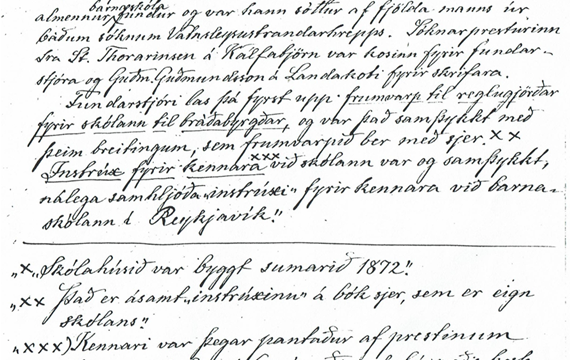 barnaskóla
almennur fundur og var hann sóttur af fjölda manns úr
báðum sóknum Vatnsleysustrandarhrepps. Sóknarpresturinn
sra St. Thorarinsen á Kálfatjörn var kosinn fyrir fundar-
stjóra og Guðm. Guðmundsson á Landakoti fyrir skrifara.
Fundarstjóri las þá fyrst upp frumvarp til reglugjörðar
fyrir skólann til bráðabyrgðar, og var það samþykkt með
þeim breitingum, sem frumvarpið ber með sjer. x x
Instrúx fyrir kennara xxx við skólann var og samþykkt,
nálega samhljóða „instrúxi“ fyrir kennara við barna-
skólann í Reykjavík."
„x „Skólahúsið var byggt sumarið 1872".
„xx Það er ásamt „instrúxinu“ á bók sjer, sem er eign
skólans."
„xxx) Kennari var þegar pantaður af prestinum